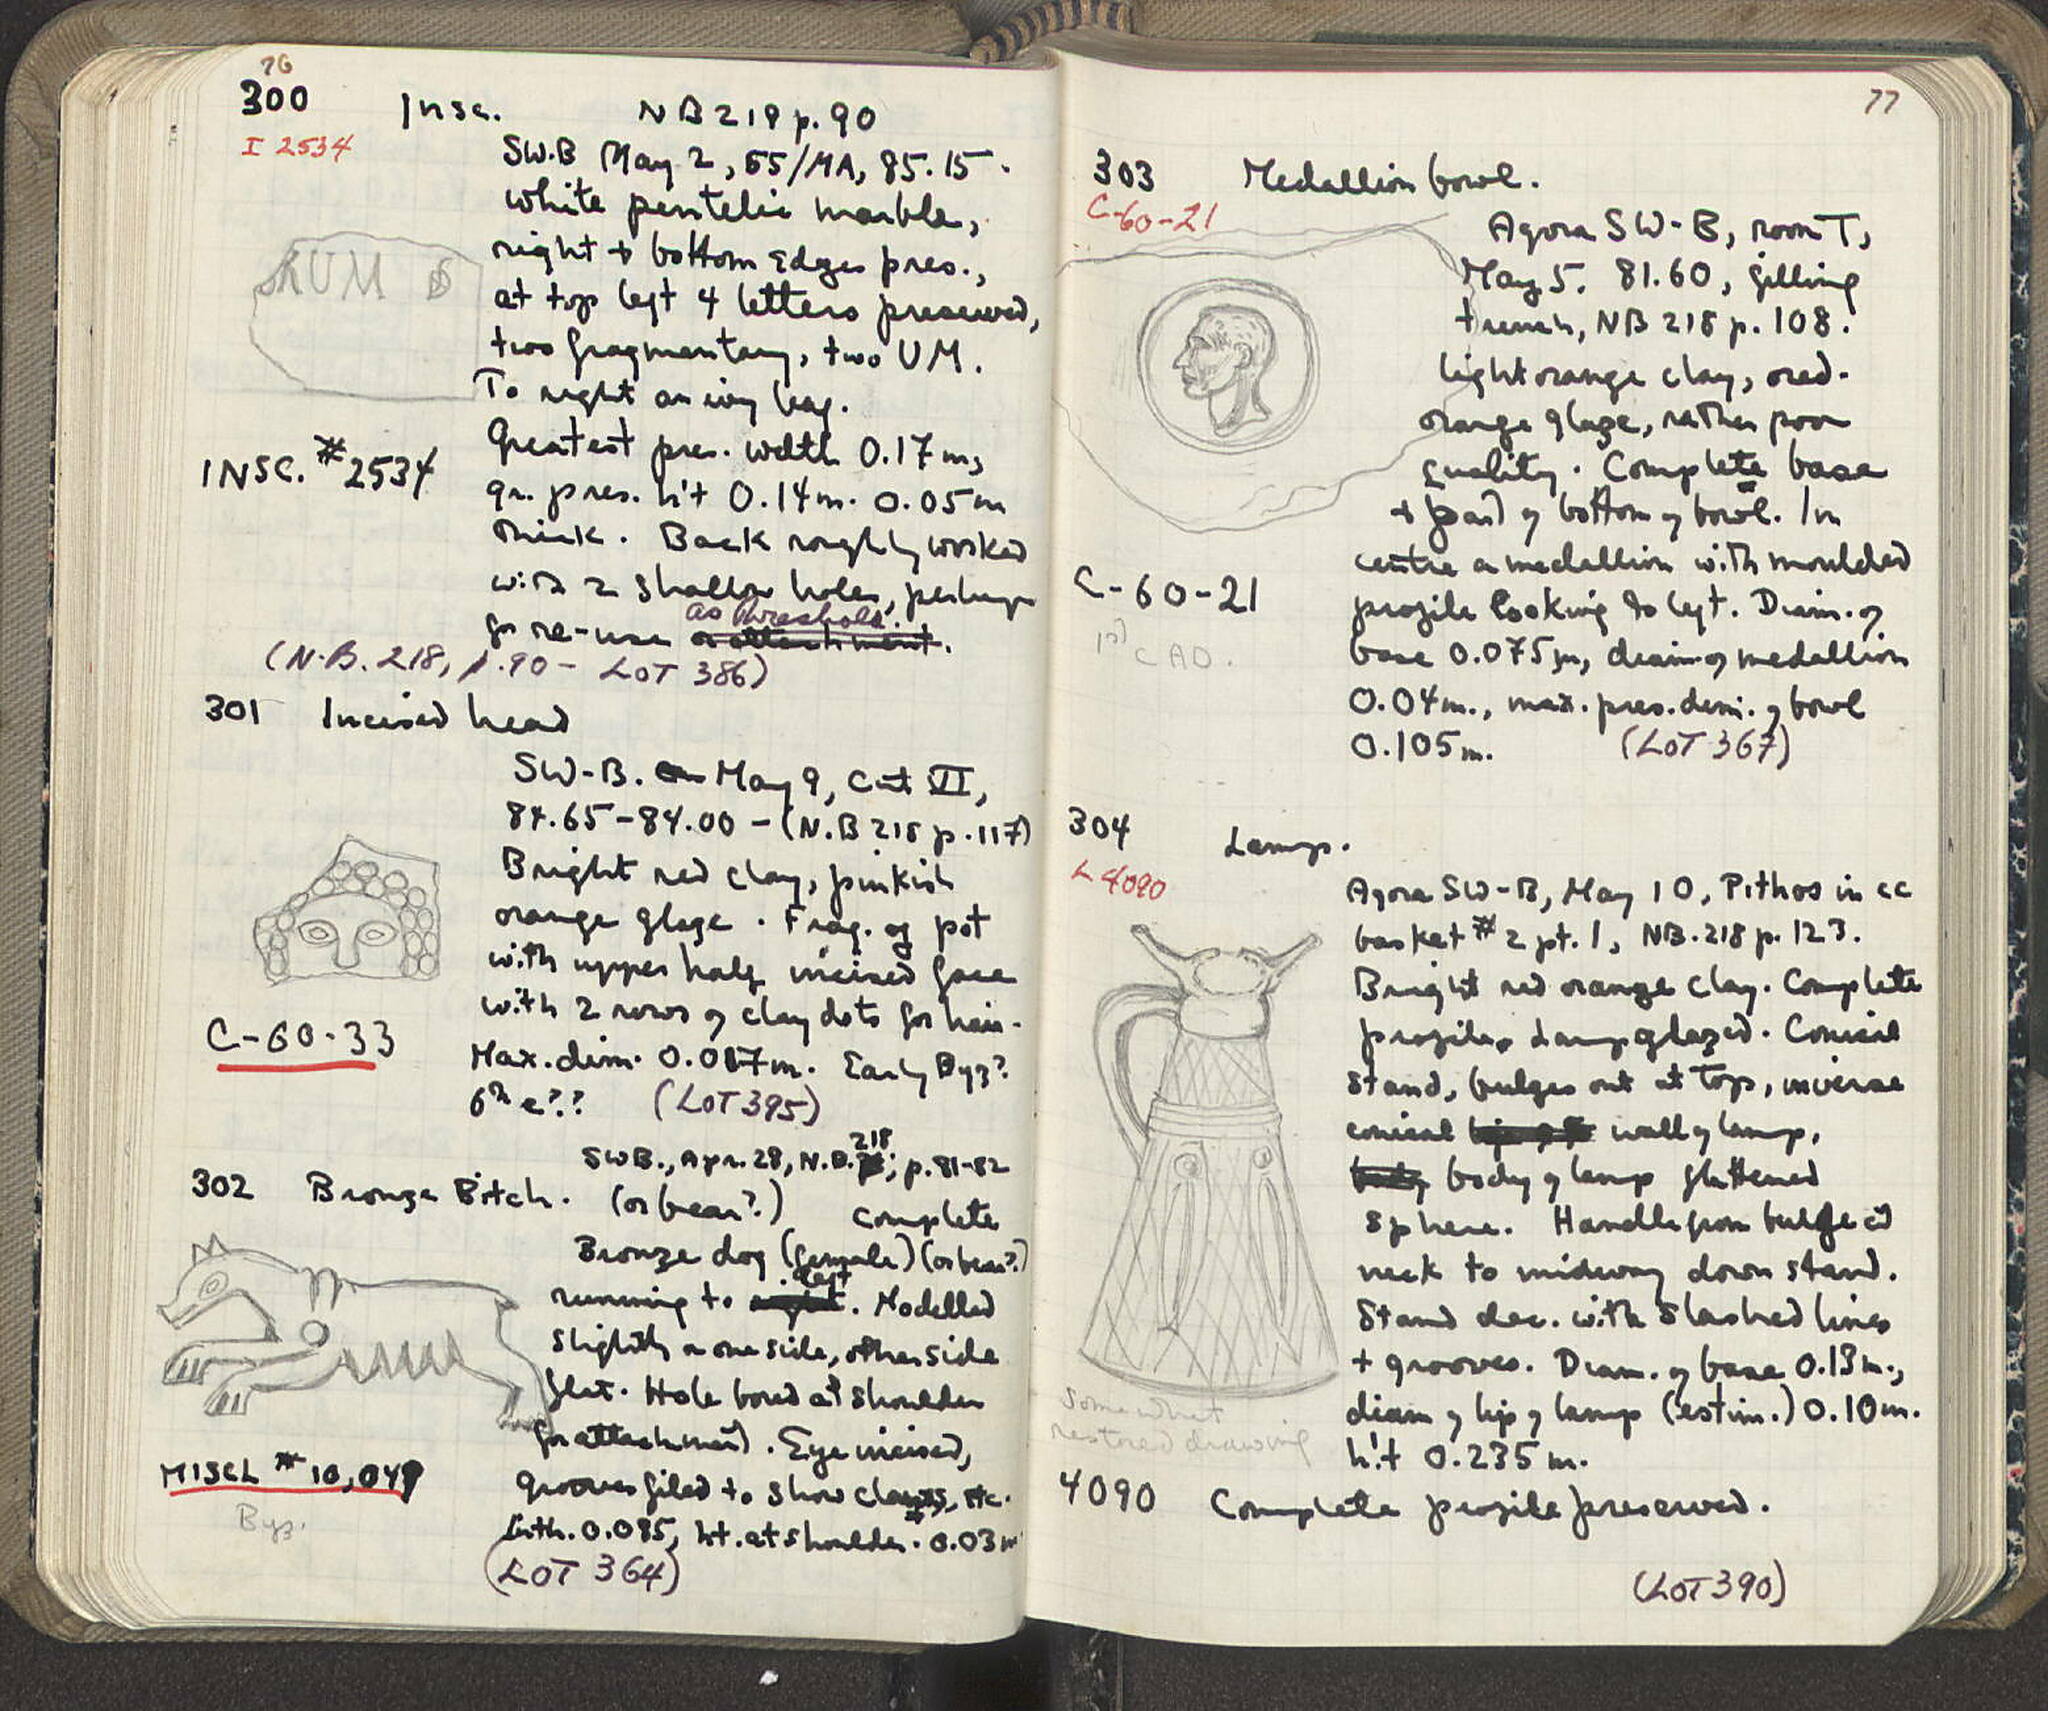 76
300 Insc. NB 218 p. 90
I 2534
SW.B May 2, 55/MA, 85.15.
White pentelic marble,
right + bottom edges pres.,
at top left 4 letters preserved,
two fragmentary, two UM.
To right an ivy leaf.
RUM
Greatest pres. width 0.17m,
INSC. #2534
gr. pres. h't 0.14m. 0.05m
thick. Back roughly worked
with 2 shallow holes, perhaps
as threshold.
for re-use or attachment.
(N.B. 218, p.90 - LOT 386)
301 Incised head
SW-B. May 9, Cut VI,
84.65-84.00 - (N.B 218 p.117)
Bright red clay, pinkish
orange glaze. Frag. of pot
with upper half incised face
with 2 rows of clay dots for hair.
C-60-33
Max. dim. 0.087m. Early Byz?
6th c?? (LOT 395)
218
SWB., Apr. 28, N.B. ; p. 81-82
302 Bronze Bitch. (or bear?) Complete
Bronze dog (female) (or bear?)
left
running to right. Modelled
slightly on one side, other side
flat. Hole bored at shoulder
for attachment. Eye incised,
MISCL # 10,049
Byz.
grooves filed to show claws, etc.
Lnth. 0.085, ht. at shoulder. 0.03m
(LOT 364)
77
303 Medallion bowl.
C-60-21
Agora SW-B, room T,
May 5. 81.60, filling
trench, NB 218 p. 108.
Light orange clay, red-
orange glaze, rather poor
quality. Complete base
+ part of bottom of bowl. In
centre a medallion with moulded
C-60-21
profile looking to left. Diam. of
1st C AD.
base 0.075m, diam of medallion
0.04m., max. pres. dim. of bowl
0.105m. (LOT 367)
304 Lamp.
L 4090
Agora SW-B, May 10, Pithos in cc
basket #2 pt. 1, NB. 218 p. 123.
Bright red orange clay. Complete
profile, Lamp glazed. Conical
stand, bulges out at top, inverse
conical lip of wall of lamp,
body body of lamp flattened
sphere. Handle from bulge at
neck to midway down stand.
Stand dec. with slashed lines
+ grooves. Diam. of base 0.13m.,
diam of lip of lamp (estim.) 0.10m.
h't 0.235m.
Somewhat
restored drawing
4090 Complete profile preserved.
(LOT 390)